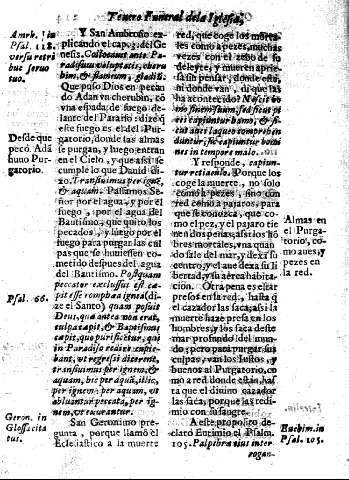 Teatro Funeral de la Iglesia,
Ambr. in
Psal. 118.
versu retri
bue servo
tuo.
Desde que
pecó Adã
huuo Pur-
gatorio.
Psal. 66.
Geron. in
Glossa cita
tus.
Y San Ambrosio ex-
plicando el cap. 3. del Ge-
nesis. Collocauit ante Pa-
radisum voluptatis, cheru
bim, & flameum, gladiũ.
Que puso Dios en pecan
do Adan vn cherubin, cõ
vna espada de fuego de-
lante del Paraiso: dize q̃
este fuego es el del Pur-
gatorio, donde las almas
se purgan, y luego entran
en el Cielo, y que assi se
cumple lo que Dauid di-
zo. Transiuimus per ignẽ,
& aquam. Passamos Se-
ñor por el agua, y por el
fuego, por el agua del
Bautismo, que quito los
pecados, y luego por el
fuego para purgar las cul
pas que se huuiessen co-
metido despues del agua
del Bautismo. Postquam
peccator exclusus est ca-
pit esse romphæa ignea (di-
ze el Santo) quam posuit
Deus, quæ antea non erat,
culpa cæpit, & Baptismus
cæpit, quo purificetur, qui
in Paradiso redire cupie-
bant, vt regressi dicerent,
transiuimus per ignem, &
aquam, hic per aquã, illic,
per ignem, per aquam, vt
abluantur peccata, per ig-
nem, vt exurantur.
San Geronimo pre-
gunta, porque llamò el
Eclesiastico a la muerte
red, que coge los morta-
les como a pezes, muchas
vezes con el cebo de su
deleyte, y mueren apriesa
sin pensar, donde estã,
ni donde van, ni que las
ha acontecido? Nescit ho
mo finem suum, sed sicut pis
ces capiuntur hamo, & si
cut aues laqueo comprehen
duntur, sic capiuntur homi
nes in tempore malo.
Y responde, capiun-
tur retiaculo. Porque los
coge la muerte, no solo
como a pezes, sino con
red como a pajaros, para
que se conozca, que co-
mo el pez, y el pajaro tie
nen dos penas; assi los hõ
bres mortales, vna quan
do sale del mar, y dexa su
centro, y el aue dexa su li
bertad, y su aerea habita-
cion. Otra pena es estar
presos en la red, hasta q̃
el cazador las saca; assi la
muerte haze presa en los
hombres, y los saca deste
mar profundo del mun-
do; pero para purgar sus
culpas, van los Justos, y
buenos al Purgatorio, co
mo a red donde estàn, has
ta que el diuino cazador
las saca, porque las redi-
mio con su sangre.
A este proposito de-
claro Eutimio el Psalm.
105. Palpebra eius inter
rogan-
Almas en
el Purga-
torio, co-
mo aues, y
pezes en
la red.
Euthim. in
Psal. 105.